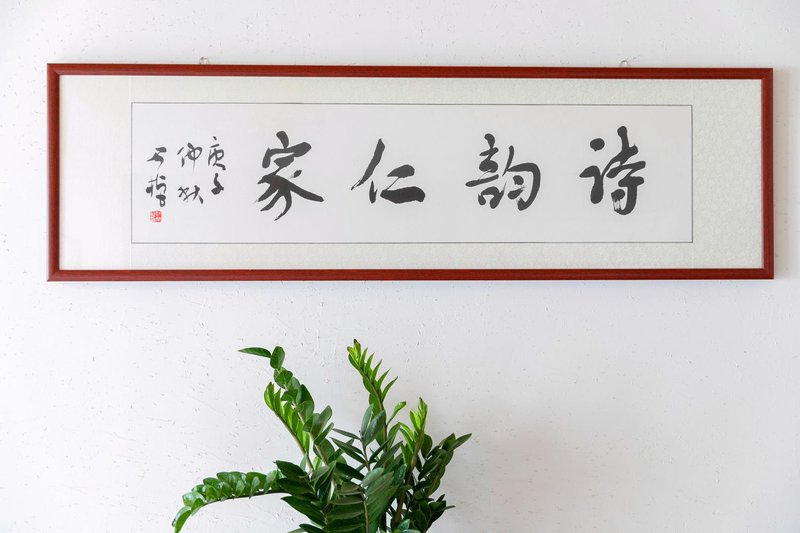 詩韵仁家
庚子
仲秋